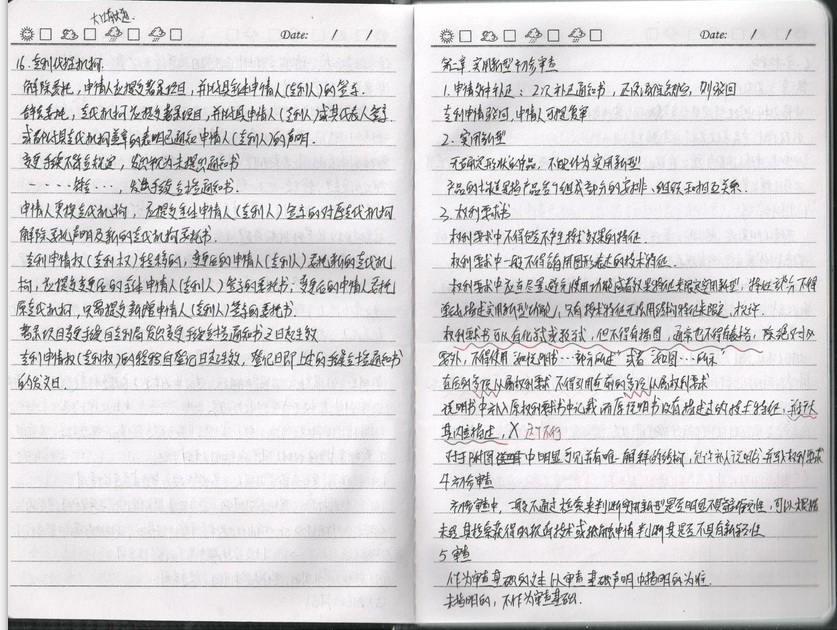 Date: / /
16. 专利代理机构.
解除委托，申请人应提交著录项目，并附具全体申请人（专利人）的签章.
辞去委托，专代机构应提交著录项目，并附具申请人（专利人）或其代表人签章
或者附具专代机构签章的表明已通知申请人（专利人）的声明.
变更手续不符合规定，发视为未提出通知书
- - - - 符合 ···，发手续合格通知书.
申请人更换专代机构，应提交全体申请人（专利人）签章的对原专代机构
解除委托声明及新的专代机构委托书.
专利申请权（专利权）转移的，变更后的申请人（专利人）委托新的专代机
构，应提交变更后的全体申请人（专利人）签章的委托书；变更后的申请人委托
原专代机构，只需提交新增申请人（专利人）签章的委托书.
著录项目变更手续自专利局发出变更手续合格通知书之日起生效
专利申请权（专利权）的转移自登记日起生效，登记日即上述的手续合格通知书
的发文日.
Date: / /
第二章 实用新型初步审查
1. 申请文件补正：2次补正通知书，还没消除缺陷，则驳回
专利申请驳回，申请人可提复审
2. 实用新型
无确定形状的产品，不能作为实用新型
产品的构造是指产品各个组成部分的安排、组织和相互关系.
3. 权利要求书
权利要求中不得包含不产生技术效果的特征.
权利要求中一般不得含有用图形表达的技术特征.
权利要求中应当尽量避免使用功能或者效果特征来限定实用新型，特征部分不得
单纯描述实用新型功能，只有技术特征无法用结构特征来限定，权许.
权利要求书可以有化学式或数学式，但不得有插图，通常也不得有表格，除绝对必
要外，不得使用"如说明书···部分所述"或者"如图···所示"
在后的多项从属权利要求不得引用在前的多项从属权利要求
说明书中补入原权利要求书中记载而原说明书没有描述过的技术特征，并扩大
其内容描述，X 这个不行
对于附图中明显可见并有唯一解释的结构，允许补入说明书并写入权利要求
4. 初步审查
初步审查中，一般不通过检索来判断实用新型是否明显不具备新颖性，可以根据
未经其检索获得的现有技术或抵触申请判断其是否不具有新颖性
5 审查
作为审查基础的文本以审查基础声明中指明的为准.
未指明的，不作为审查基础.